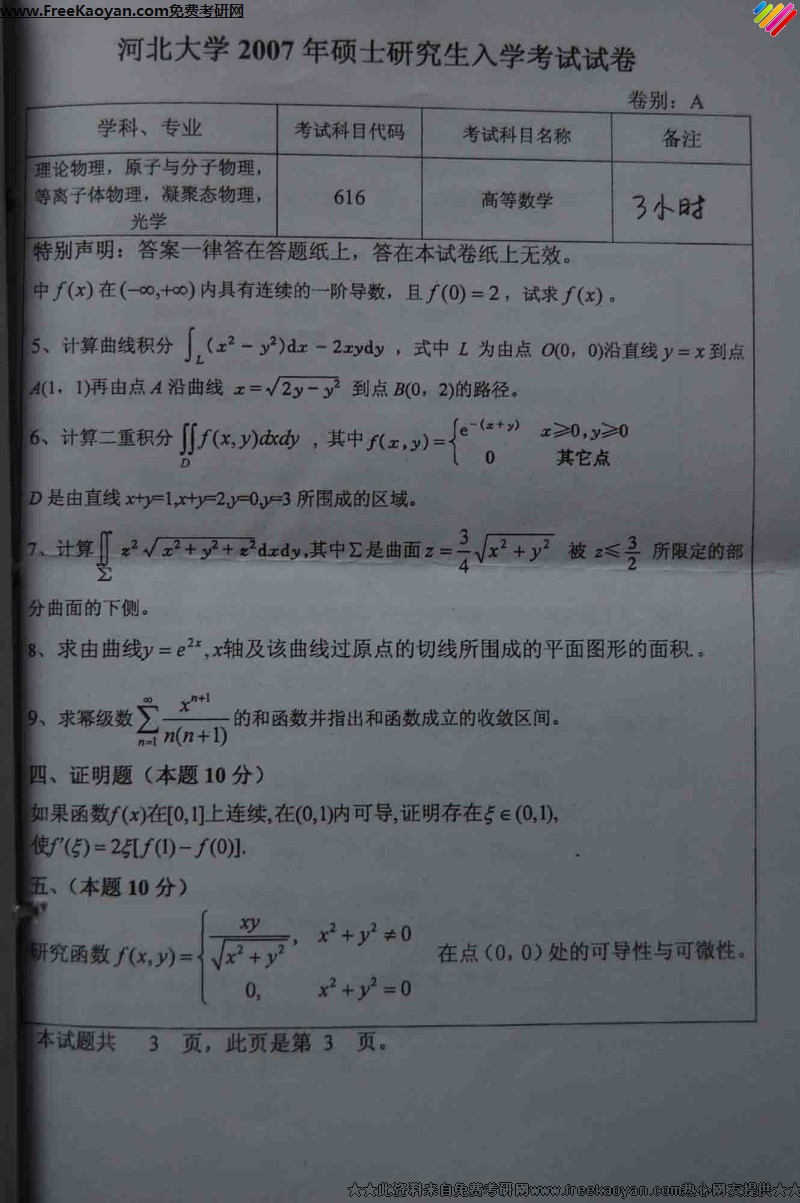 www.FreeKaoyan.com免费考研网
河北大学 2007 年硕士研究生入学考试试卷
卷别：A
学科、专业 考试科目代码 考试科目名称 备注
理论物理，原子与分子物理，
等离子体物理，凝聚态物理， 616 高等数学 3小时
光学
特别声明：答案一律答在答题纸上，答在本试卷纸上无效。
中 f(x) 在 (−∞,+∞) 内具有连续的一阶导数，且 f(0) = 2 ，试求 f(x) 。
5、计算曲线积分 ∫_L (x² − y²)dx − 2xydy ，式中 L 为由点 O(0，0)沿直线 y = x 到点
A(1，1)再由点 A 沿曲线 x = √(2y − y²) 到点 B(0，2)的路径。
6、计算二重积分 ∬_D f(x, y)dxdy ，其中 f(x,y) = { e^{-(x+y)} x≥0,y≥0
0 其它点
D 是由直线 x+y=1,x+y=2,y=0,y=3 所围成的区域。
7、计算 ∬_Σ z²√(x² + y² + z²)dxdy,其中Σ是曲面 z = 3/4 √(x² + y²) 被 z≤ 3/2 所限定的部
分曲面的下侧。
8、求由曲线y = e^{2x} , x轴及该曲线过原点的切线所围成的平面图形的面积.。
9、求幂级数 ∑_{n=1}^{∞} x^{n+1}/n(n+1) 的和函数并指出和函数成立的收敛区间。
四、证明题（本题 10 分）
如果函数f(x)在[0,1]上连续,在(0,1)内可导,证明存在ξ ∈ (0,1),
使f′(ξ) = 2ξ[f(1) − f(0)].
五、（本题 10 分）
研究函数 f(x, y) = { xy/√(x² + y²) , x² + y² ≠ 0 在点（0，0）处的可导性与可微性。
0, x² + y² = 0
本试题共 3 页，此页是第 3 页。
★★此资料来自免费考研网www.freekaoyan.com热心网友提供★★